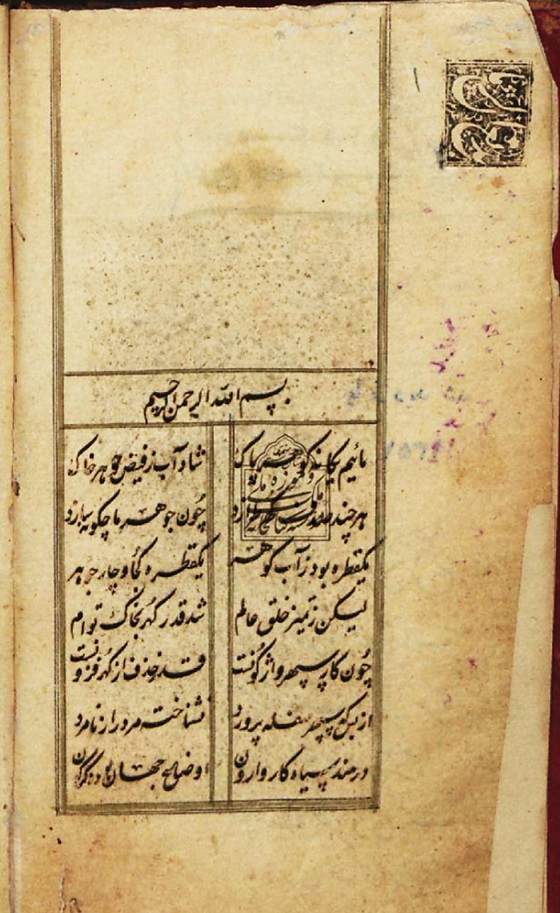 بسم الله الرحمن الرحیم
مائیم یگانه گوهر پاک شاداب ز فیض جوهر خاک
هر چند صدف چون جوهر ما چگونه سازد
یکقطره بود ز آب گوهر یکقطره کجا و چار جوهر
لیکن ز تمیز خلق عالم شد قدر گهر بخاک توام
چون کار سپهر واژگونست قدر خذف از گهر فزونست
از بس که سپهر سفله پرورد نشناخته مرد را ز نامرد
در هند سیاه کار وارون اوضاع جهان